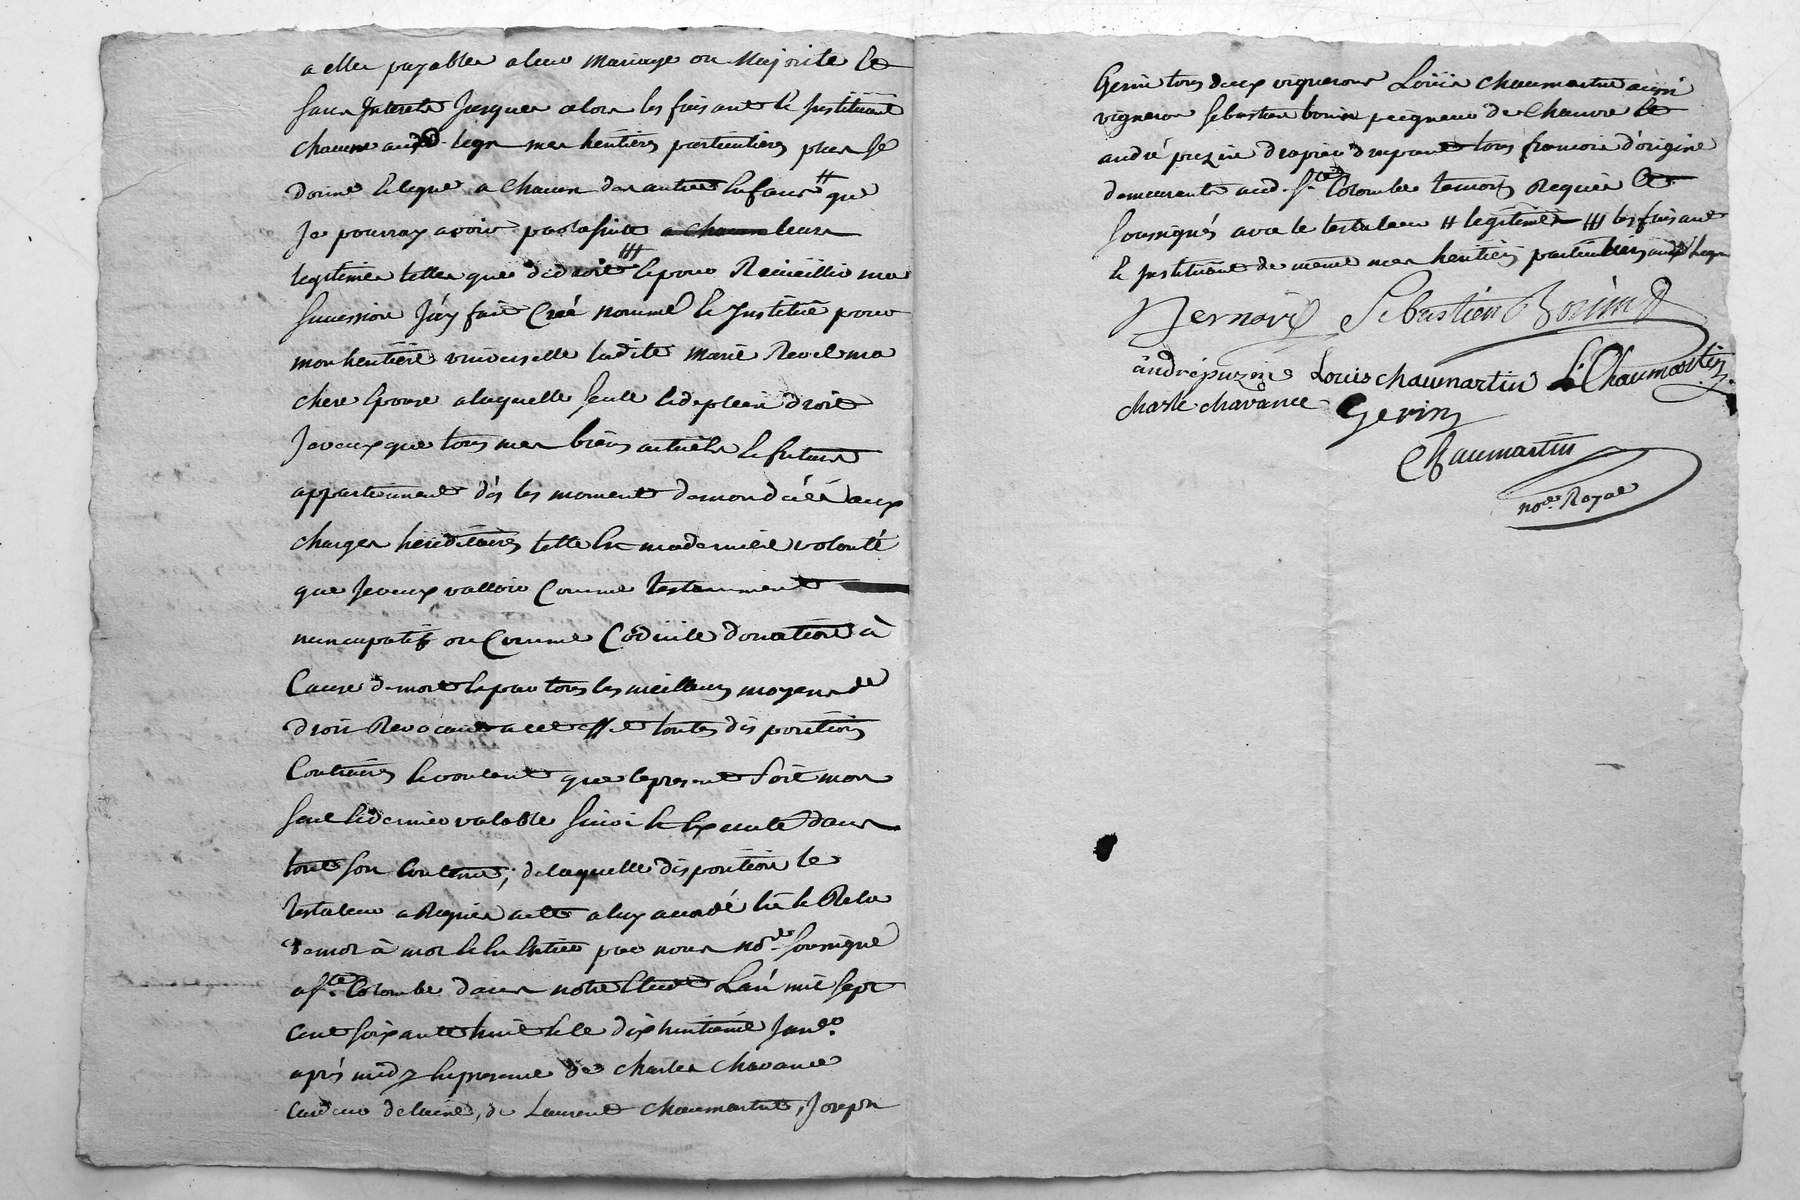 a elles payables a leur mariage ou majorité et
sans Interets jusques alors les faisant et Instituant
chacune audt. legs mes heritiers particulieres plus je
donne et legue a chacun des autres Enfans # que
je pourray avoir par la suite a chacun leurs
legitimes telles que de droit ### et pour Recueillir ma
succession j'ay fait créé nommé et Institué pour
mon heritiere universelle ladite marie Revel ma
chere Epouse a laquelle seule et de plein droit
je veux que tous mes biens actuels et futurs
appartiennent dès les moment de mon décès aux
charges hereditaires telle Est ma derniere volonté
que je veux valloir comme testamment
nuncupatif ou comme Codicile donation à
Cause de mort et par tous les meilleurs moyens de
droit Revocant a cet effet toutes dispositions
Contraires et voulant que le present soit mon
seul et dernier valable suivi et Executé dans
tout son contenu; de laquelle disposition le
testateur a Requis acte a luy accordé lu et Relu
de mot à mot et lu Entier par nous nore. soussigné
a ste. Colombe dans notre Etude L'an mil sept
cent soixante huit et le dix huitieme janer.
après midy En presence de charles chavance
cardeur de laine, de Laurent chaumartin, joseph
Gerin tous deux vignerons Loüis chaumartin aussi
vigneron sebastien bonin peigneur de chanvre et
andré puzin drapier drapant tous francois d'origine
demeurants aud. ste. Colombe temoins Requis et
soussignés avec le testateur # legitimes ### les faisant
et Instituant de même mes heritiers particuliers audt legs
Sebastien Bonin
andré puzin Louis chaumartin L. Chaumartin
charle chavance Gerin
Chaumartin
nore. Royal